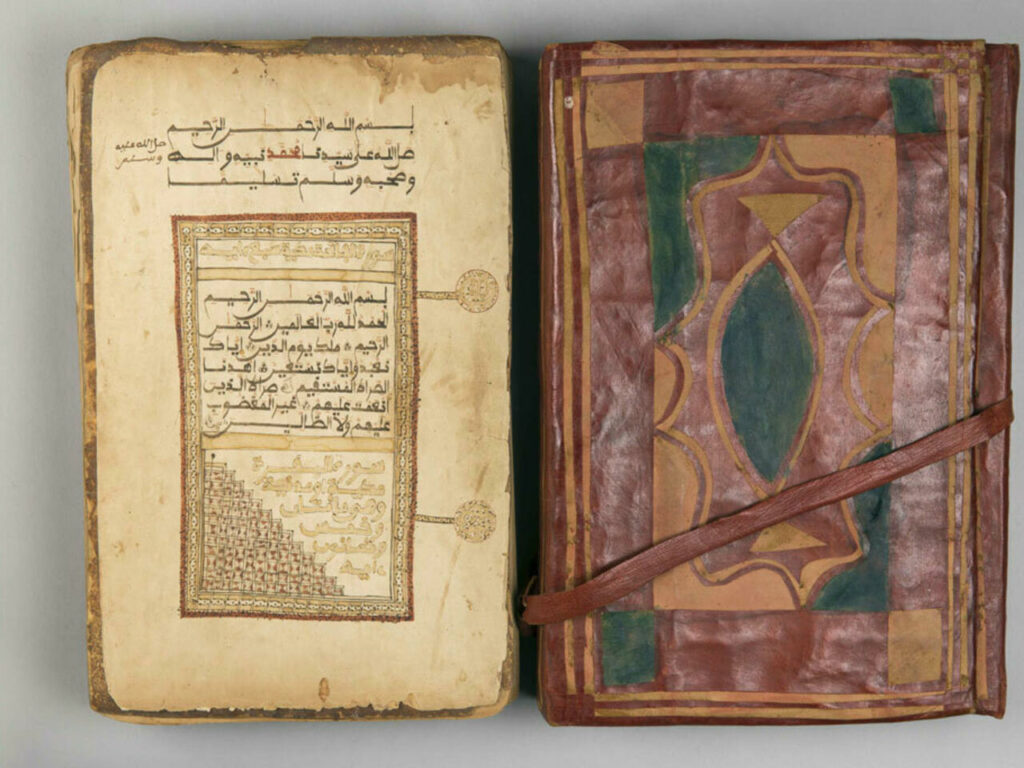 بسم الله الرحمن الرحيم
صلى الله على سيدنا محمد نبيه واله
صلى الله عليه
وسلم
وصحبه وسلم تسليما
سورة الفاتحة
بسم الله الرحمن الرحيم
الحمد لله رب العالمين الرحمن
الرحيم ملك يوم الدين إياك
نعبد وإياك نستعين اهدنا
الصراط المستقيم صراط الذين
أنعمت عليهم غير المغضوب
عليهم ولا الضالين
سورة البقرة
وخمس
وثمانون
اية